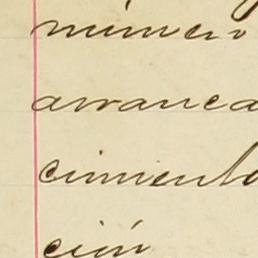 número
arranca
cimiento
ción